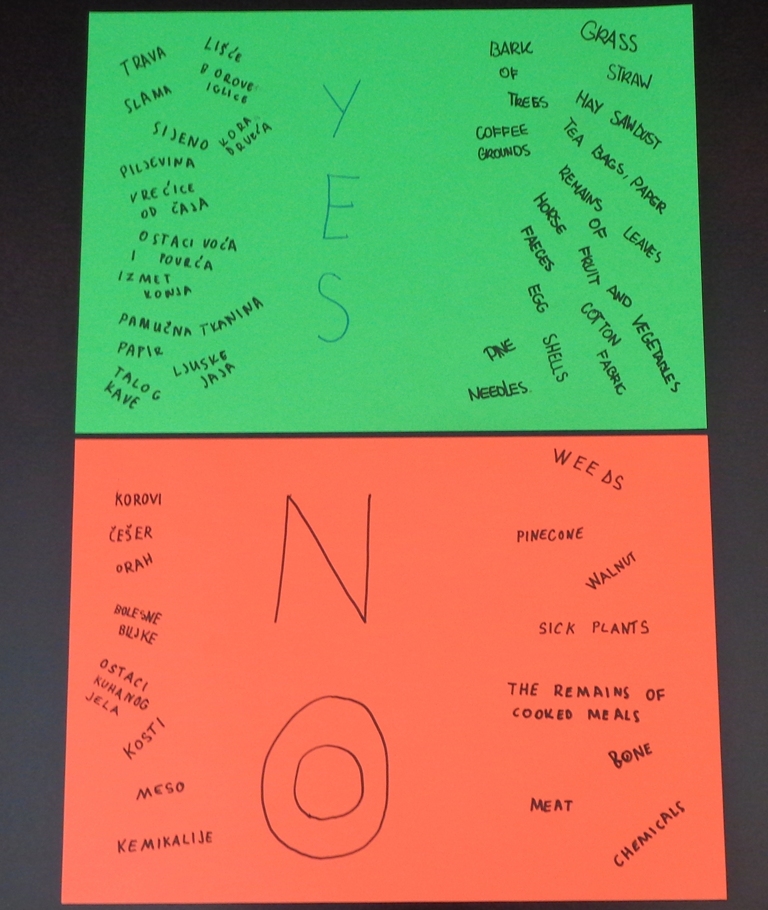 TRAVA
LIŠĆE
BOROVE
IGLICE
SLAMA
SIJENO
KORA
DRVEĆA
PILJEVINA
VREĆICE
OD ČAJA
OSTACI VOĆA
I POVRĆA
IZMET
KONJA
PAMUČNA TKANINA
PAPIR
LJUSKE
JAJA
TALOG
KAVE
Y
E
S
BARK
OF
TREES
COFFEE
GROUNDS
GRASS
STRAW
HAY SAWDUST
TEA BAGS, PAPER
REMAINS OF FRUIT AND VEGETABLES
LEAVES
HORSE
FAECES
EGG SHELLS
COTTON
FABRIC
PINE
NEEDLES.
KOROVI
ČEŠER
ORAH
BOLESNE
BILJKE
OSTACI
KUHANOG
JELA
KOSTI
MESO
KEMIKALIJE
N
O
WEEDS
PINECONE
WALNUT
SICK PLANTS
THE REMAINS OF
COOKED MEALS
BONE
MEAT
CHEMICALS